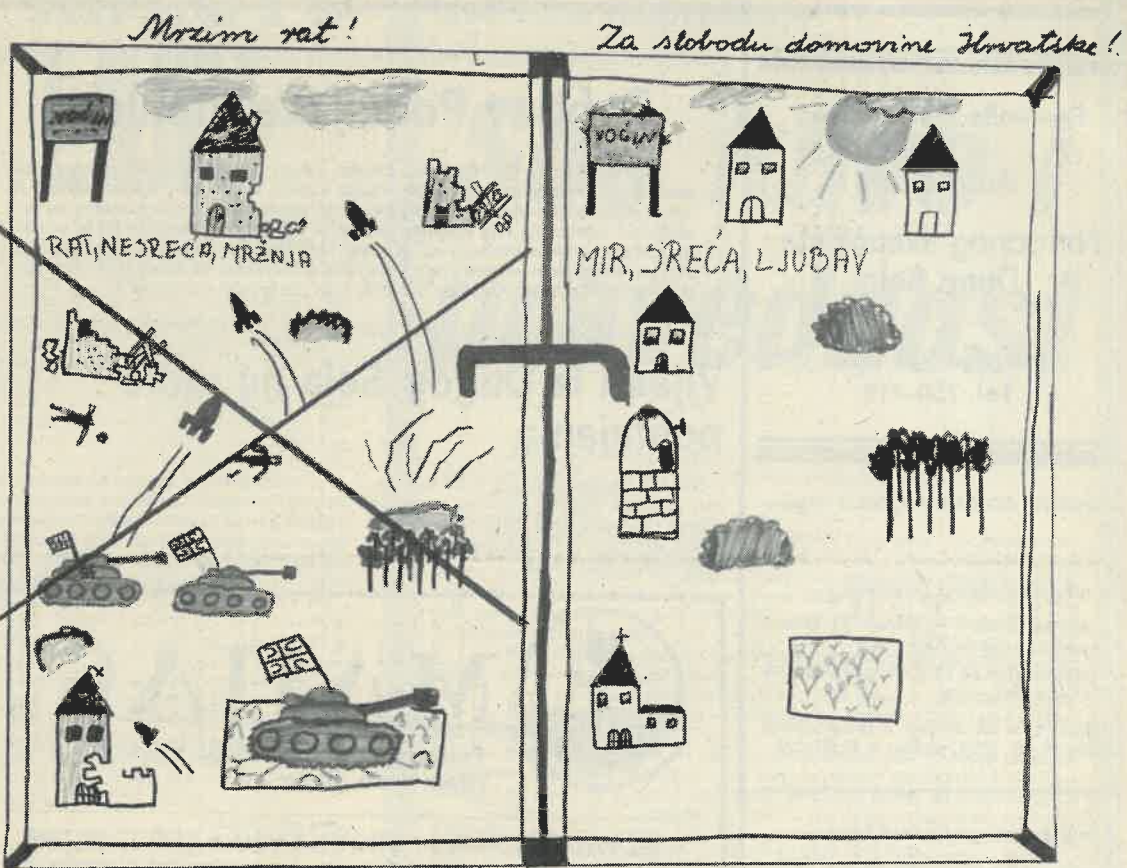 Mrzim rat!
Za slobodu domovine Hrvatske!
VOĆIN
VOĆIN
RAT, NESREĆA, MRŽNJA
MIR, SREĆA, LJUBAV